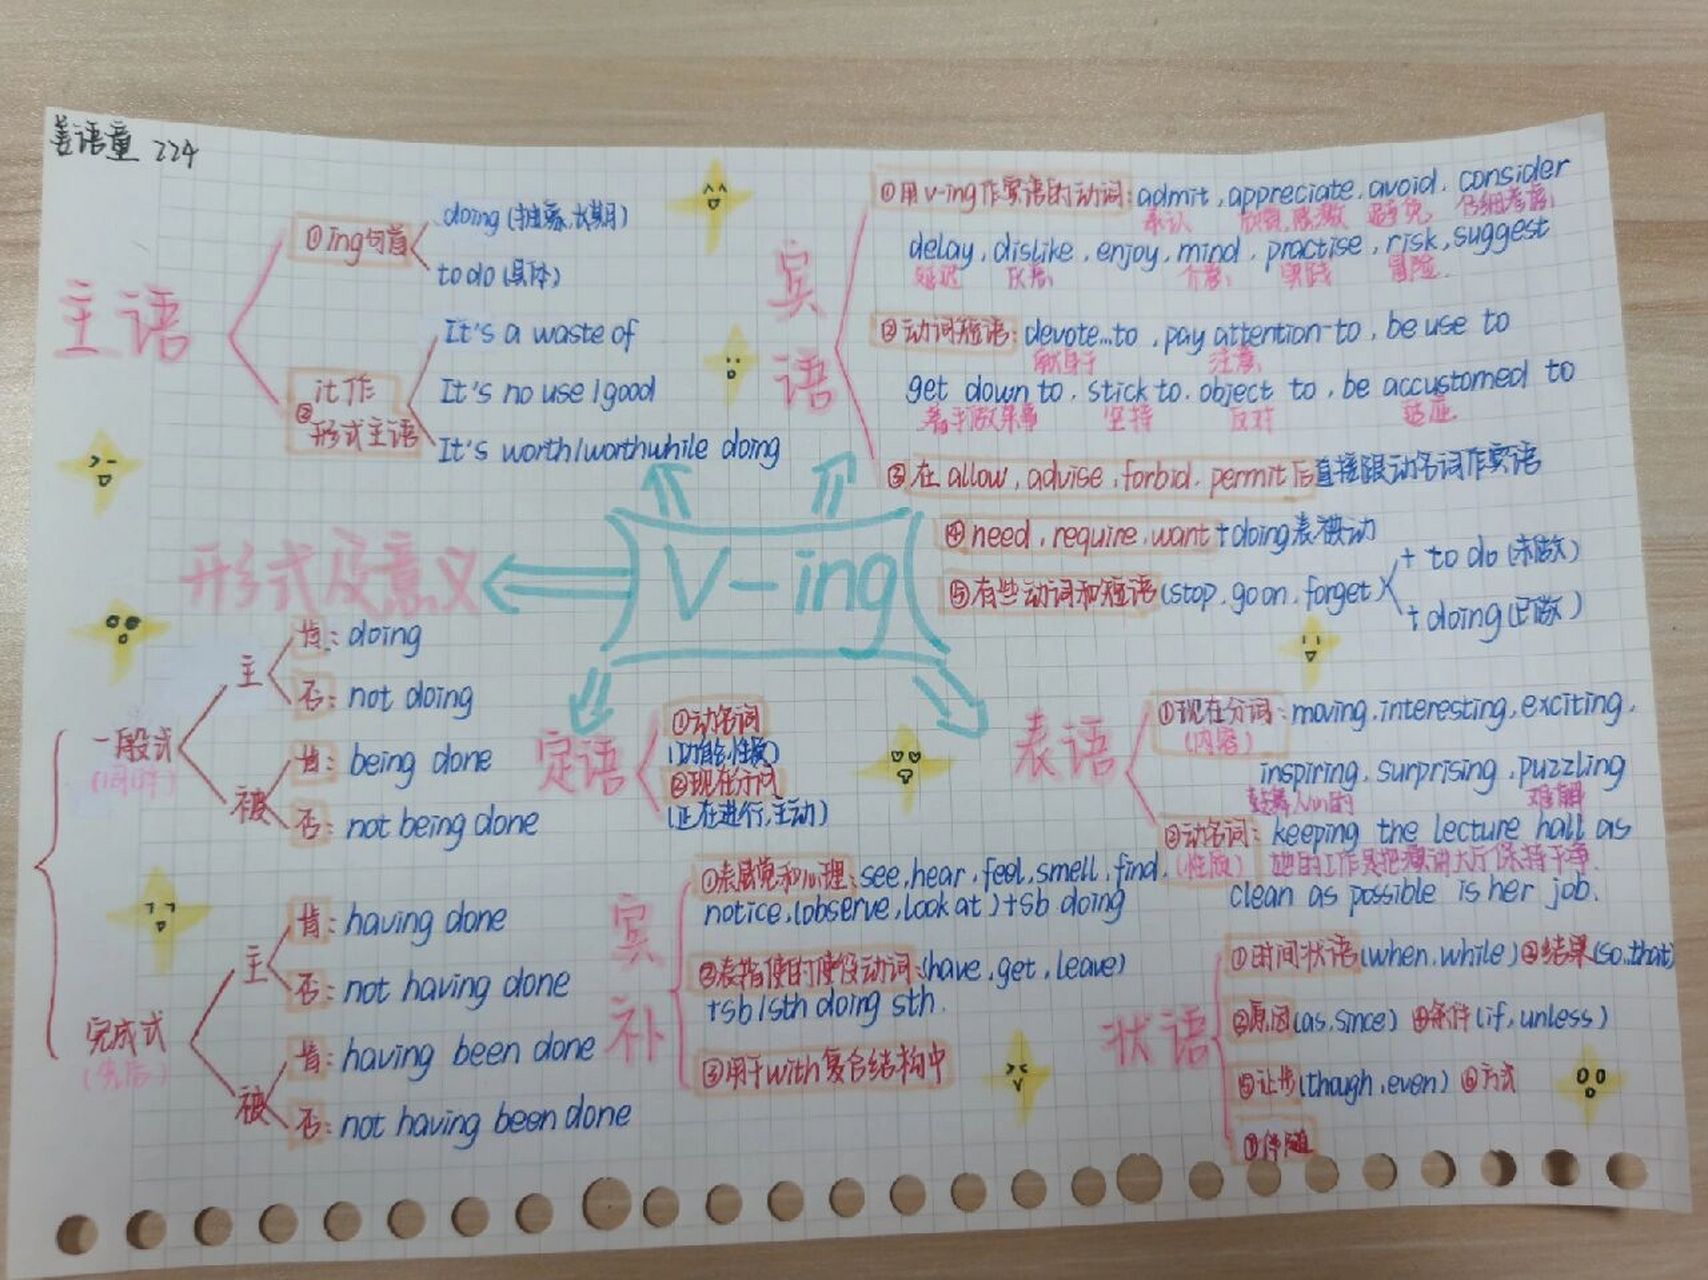 姜语童 224
主语
①ing句首
doing (抽象,长期)
to do (具体)
②it作
形式主语
It's a waste of
It's no use/good
It's worth/worthwhile doing
宾语
①用v-ing作宾语的动词: admit, appreciate, avoid, consider
承认 欣赏,感激 避免 仔细考虑
delay, dislike, enjoy, mind, practise, risk, suggest
延迟 介意 实践 冒险
②动词短语: devote...to, pay attention to, be use to
献身于 注意
get down to, stick to, object to, be accustomed to
着手做某事 坚持 反对 适应
③在 allow, advise, forbid, permit后直接跟动名词作宾语
④need, require, want +doing表被动
⑤有些动词和短语(stop, go on, forget)
+ to do (未做)
+ doing (已做)
V-ing
形式及意义
一般式
(同时)
主
肯: doing
否: not doing
被
肯: being done
否: not being done
完成式
(先后)
主
肯: having done
否: not having done
被
肯: having been done
否: not having been done
定语
①动名词
(功能,性质)
②现在分词
(正在进行,主动)
表语
①现在分词: moving, interesting, exciting,
(内容)
inspiring, surprising, puzzling
鼓舞人心的 难解
②动名词: keeping the lecture hall as
(性质) 她的工作是把演讲大厅保持干净.
clean as possible is her job.
宾补
①表感觉和心理: see, hear, feel, smell, find,
notice, (observe, look at)+sb doing
②表指使的使役动词: (have, get, leave)
+sb/sth doing sth.
③用于with复合结构中
状语
①时间状语(when, while) ②结果(so, that)
②原因(as, since) ④条件(if, unless)
⑤让步(though, even) ⑥方式
⑦伴随